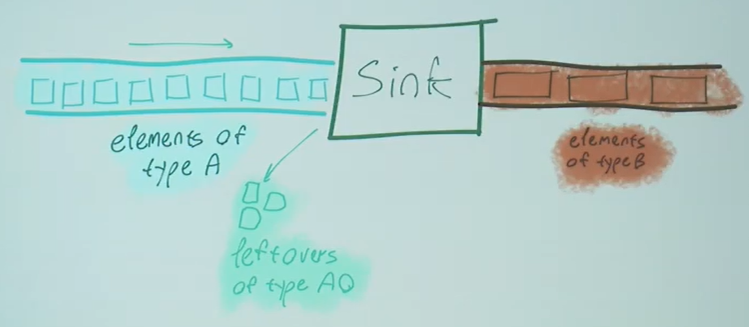 Sink
elements of
type A
elements
of type B
leftovers
of type A0